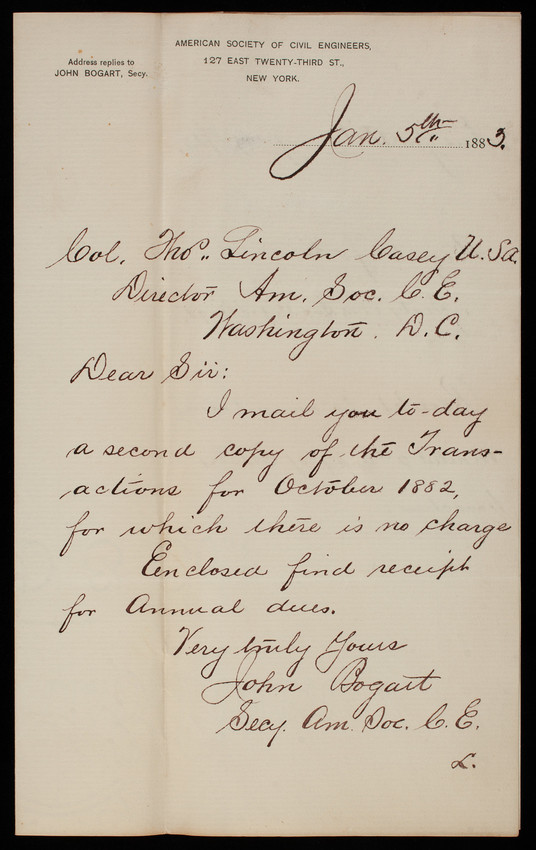 AMERICAN SOCIETY OF CIVIL ENGINEERS,
127 EAST TWENTY-THIRD ST.,
NEW YORK.
Address replies to
JOHN BOGART, Secy.
Jan. 5th 1883.
Col. Thos. Lincoln Casey U.S.A.
Director Am. Soc. C. E.
Washington. D. C.
Dear Sir:
I mail you to-day
a second copy of the Trans-
actions for October 1882,
for which there is no charge
Enclosed find receipt
for Annual dues.
Very truly Yours
John Bogart
Secy. Am. Soc. C. E.
L.